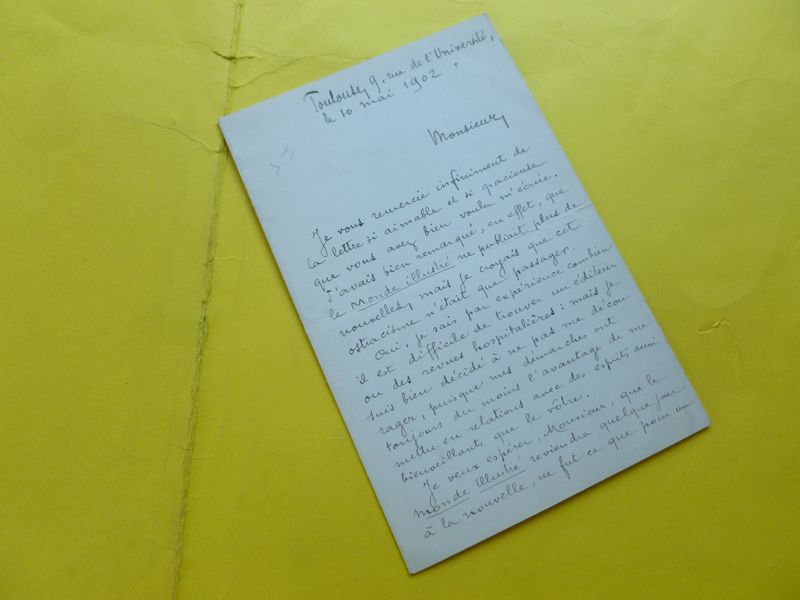 Toulouse, 9, rue de l'Université,
le 10 mai 1902.
Monsieur,
Je vous remercie infiniment de
la lettre si aimable et si gracieuse
que vous avez bien voulu m'écrire.
J'avais bien remarqué, en effet, que
le Monde illustré ne publiait plus de
nouvelles, mais je croyais que cet
ostracisme n'était que passager.
Oui, je sais par expérience combien
il est difficile de trouver un éditeur
ou des revues hospitalières : mais je
suis bien décidé à ne pas me décou-
rager, puisque mes démarches ont
toujours du moins l'avantage de me
mettre en relations avec des esprits aussi
bienveillants que le vôtre.
Je veux espérer, Monsieur, que le
Monde illustré reviendra quelque jour
à la nouvelle, ne fut-ce que pour un